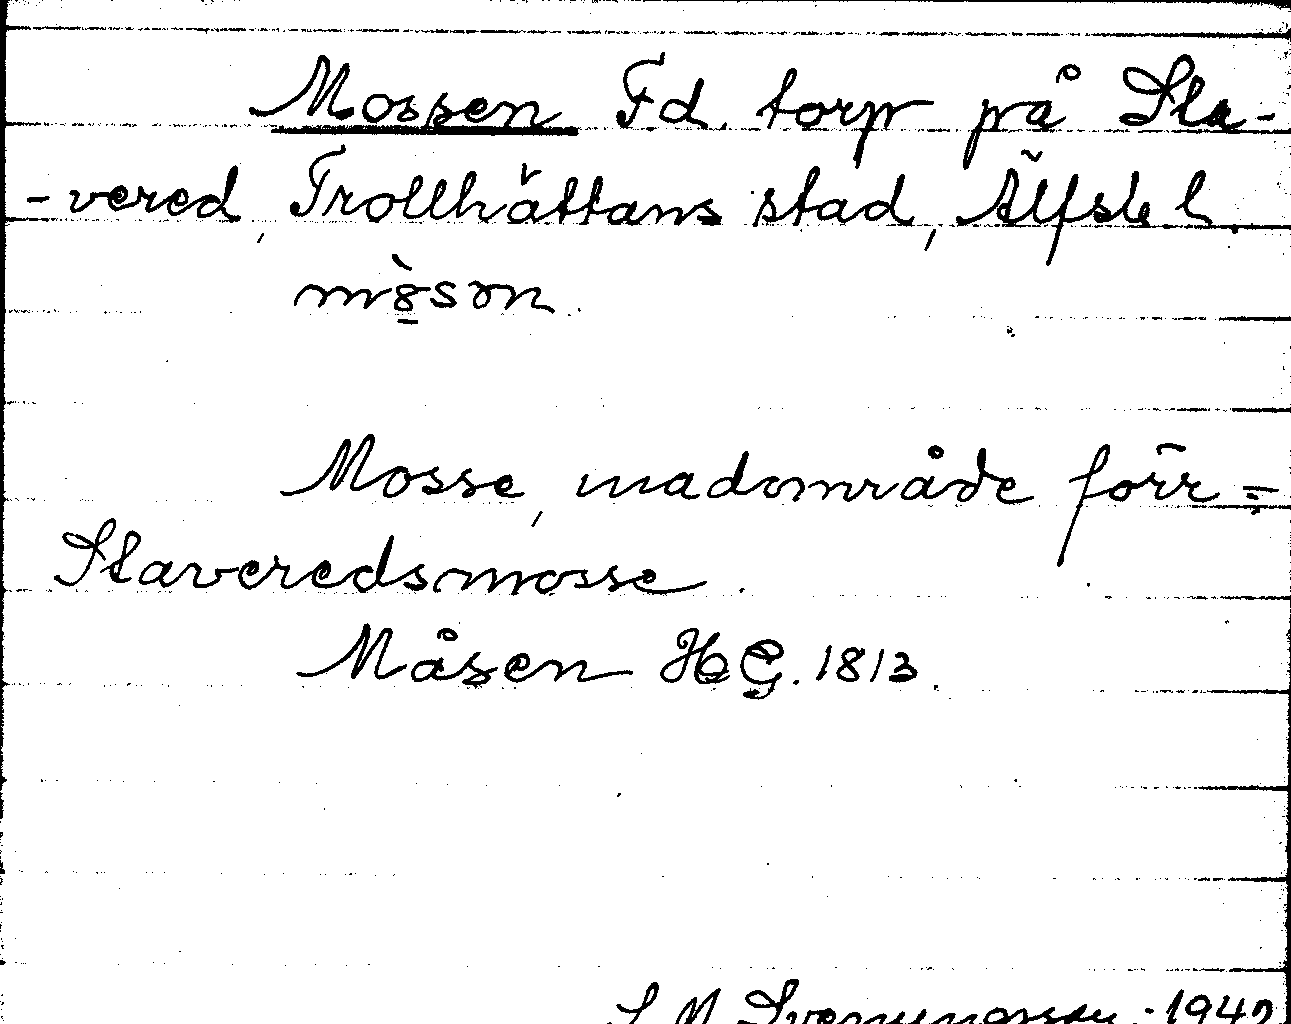 Mossen Fd. torp på Sla-
-vered, Trollhättans stad, Älfsb. l.
mo̱̊̀son.
Mosse, madområde förr =
Slaveredsmosse.
Måsen HG. 1813.
1942